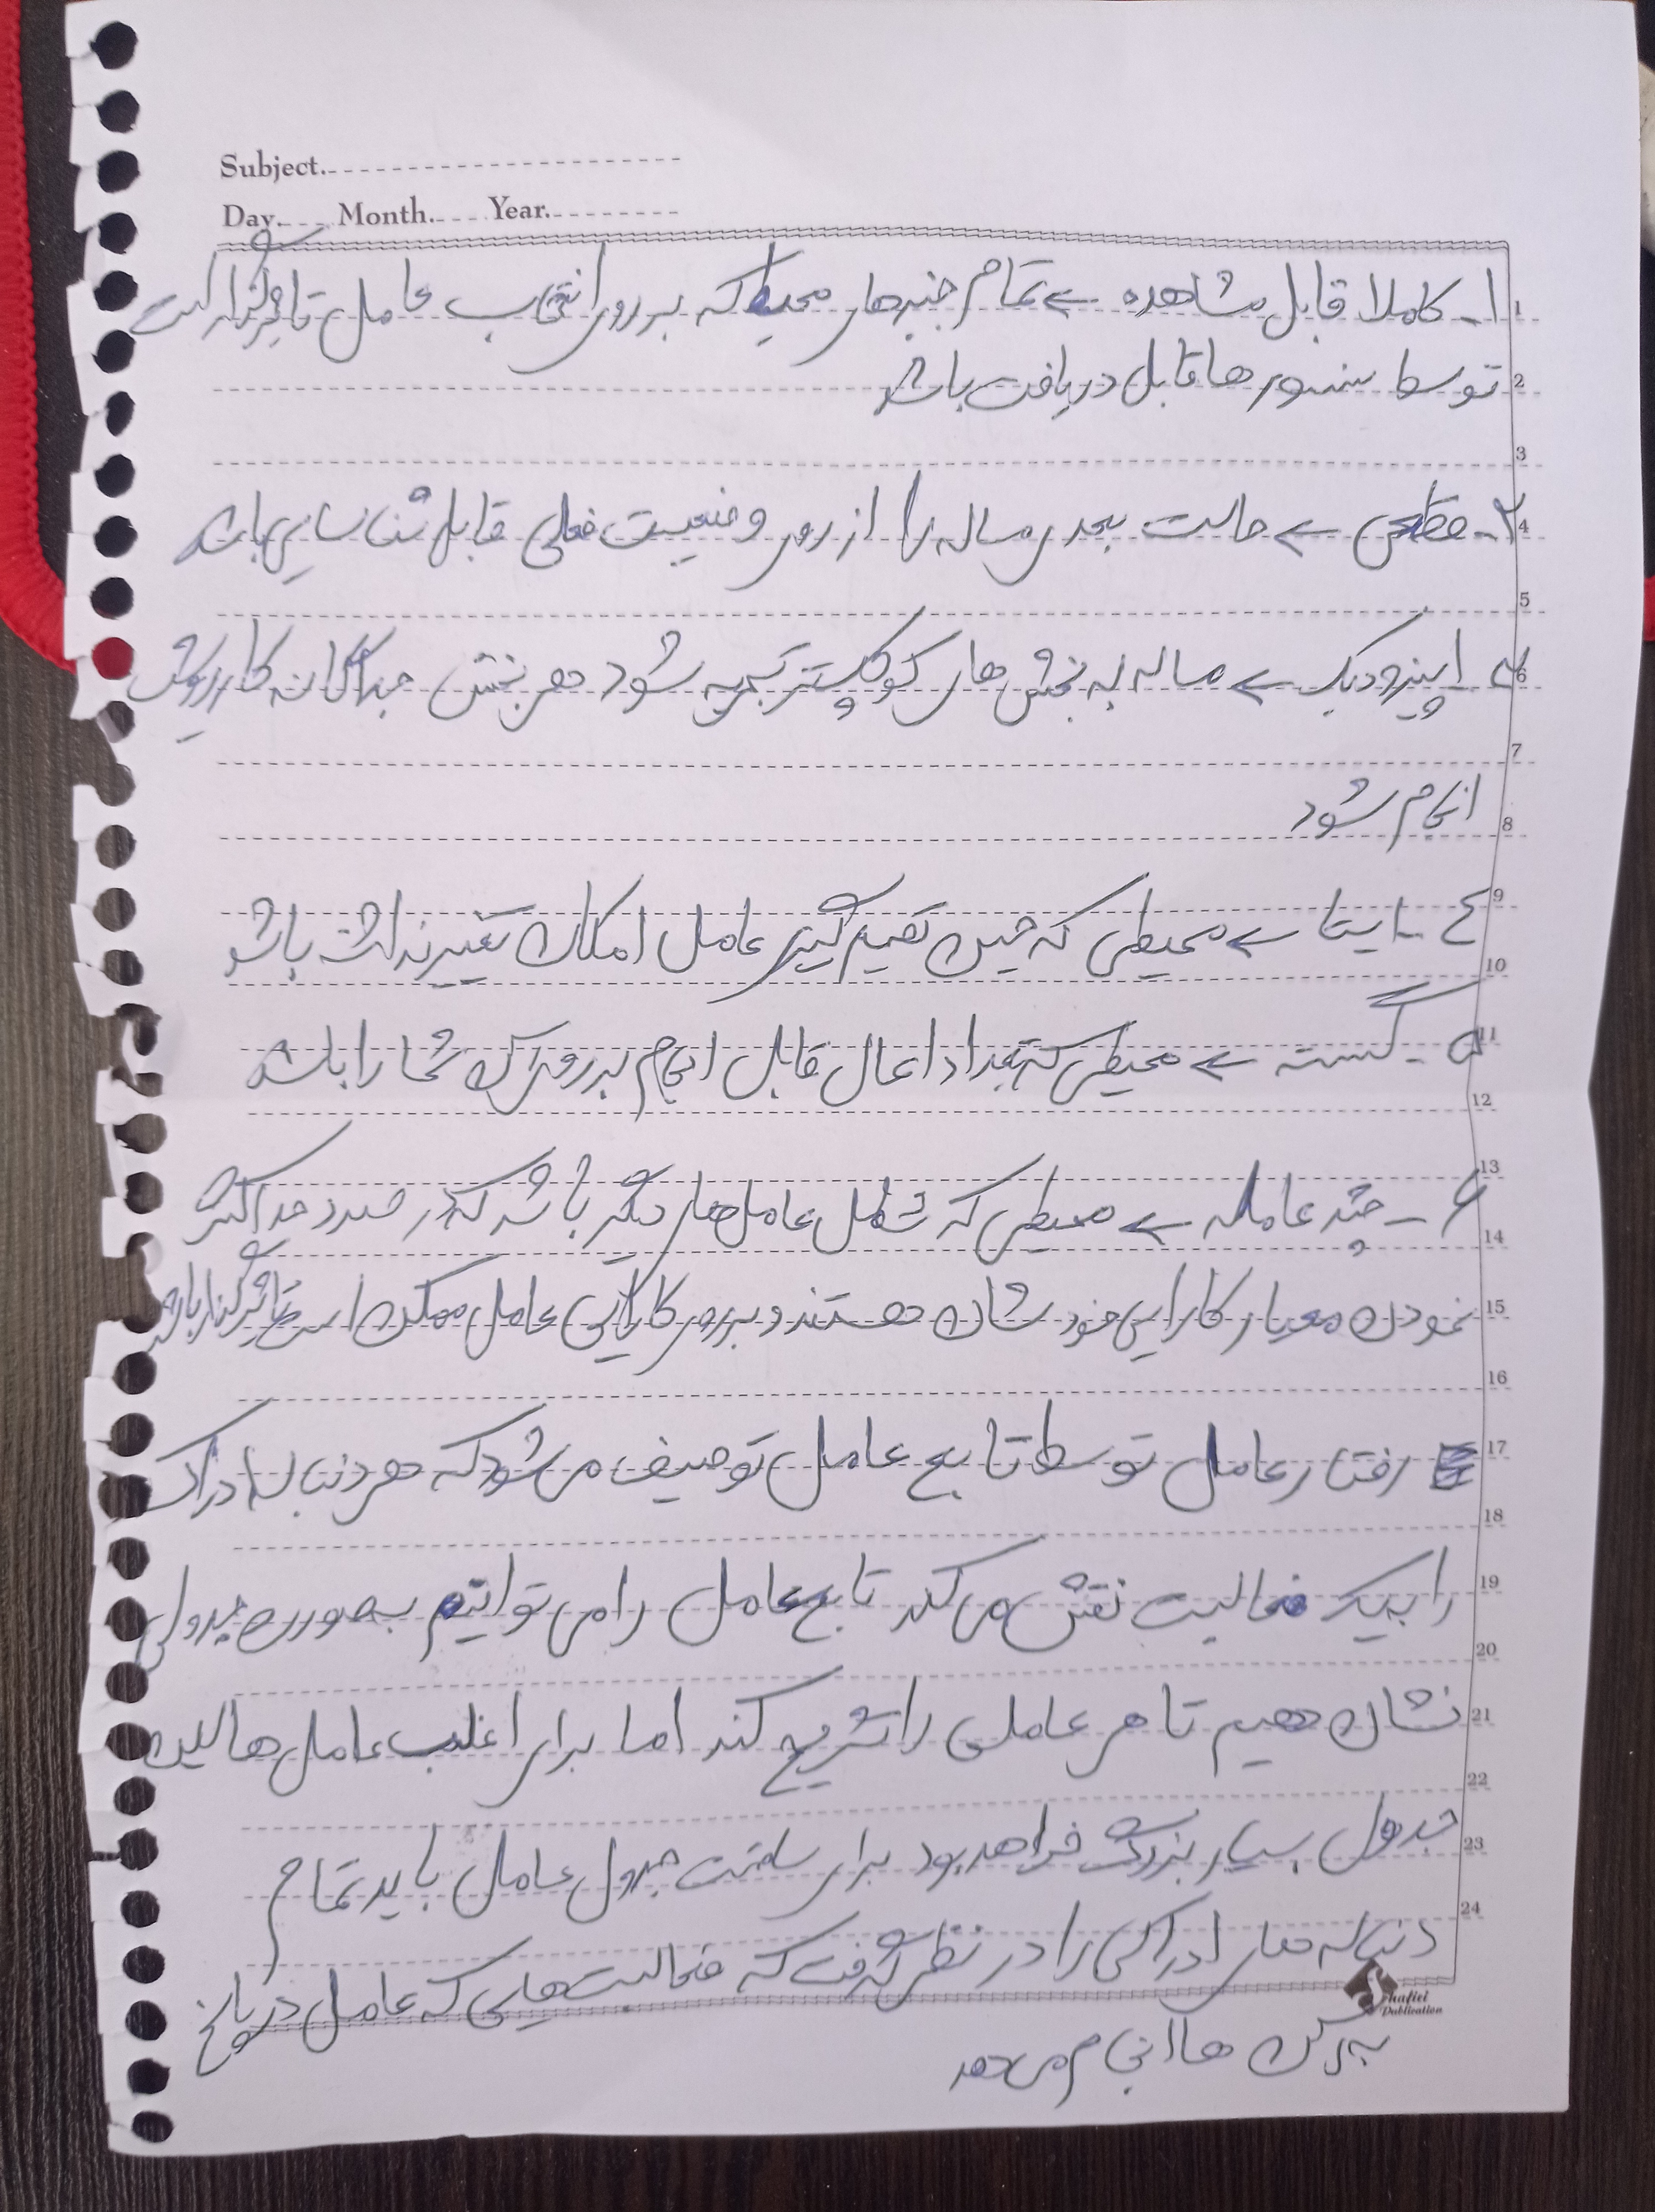 Subject.
Day. Month. Year.
۱ـ کاملا قابل مشاهده ← تمام جنبه‌های محیط که بر روی انتخاب عامل تاثیرگذار است
توسط سنسور ها قابل دریافت باشد
۲ـ قطعی ← حالت بعدی مساله را از روی وضعیت فعلی قابل شناسایی باشد
۳ـ اپیزودیک ← مساله به بخش های کوچکتر تجزیه شود هر بخش جداگانه کار رویش
انجام شود
۴ـ ایستا ← محیطی که حین تصمیم گیری عامل امکان تغییر نداشته باشد
۵ـ گسسته ← محیطی که تعداد اعمال قابل انجام بر روی آن شمارا باشد
۶ـ چند عامله ← محیطی که شامل عامل‌های دیگر باشد که در صدد حداکثر
نمودن معیار کارایی خودشان هستند و بر روی کارایی عامل ممکن است تاثیرگذار باشد
رفتار عامل توسط تابع عامل توصیف می شود که هر دنباله ادراک
را به یک فعالیت نقش می کند تابع عامل را می توانیم به صورت جدولی
نشان دهیم تا هر عاملی را تشریح کند اما برای اغلب عامل ها این
جدول بسیار بزرگ خواهد بود برای ساخت جدول عامل باید تمام
دنباله های ادراکی را در نظر گرفت که فعالیت‌هایی که عامل در پاسخ
به آن ها انجام می دهد
1
2
3
4
5
6
7
8
9
10
11
12
13
14
15
16
17
18
19
20
21
22
23
24
Shafiei
Publication